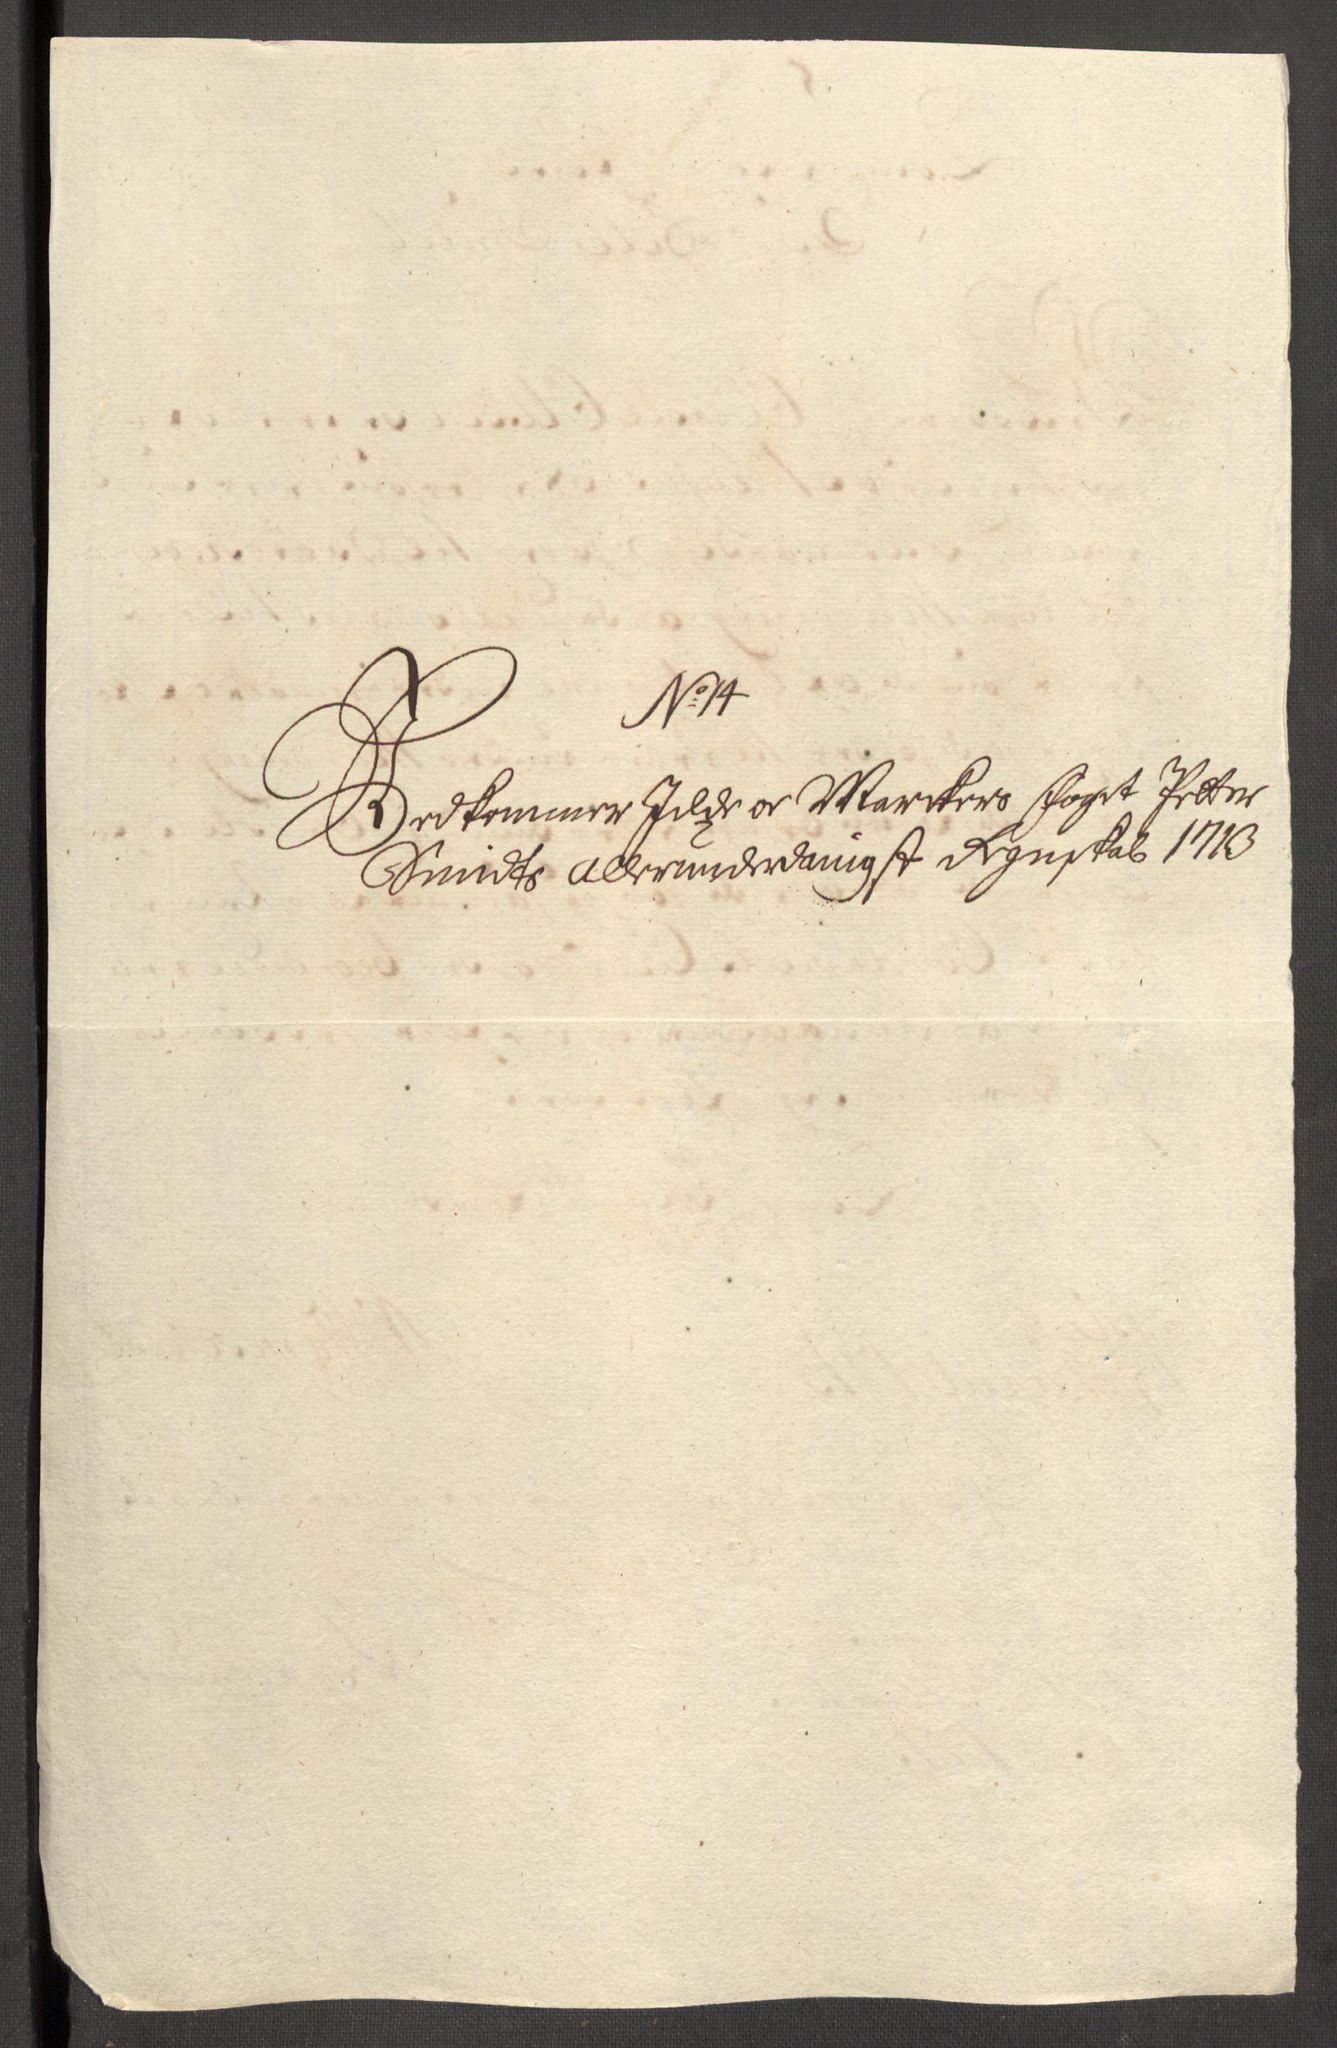 No 14
Vedkommer Idde oc Marckers fogt Petter
Smidts allerunderdanigst Regnskab 1713